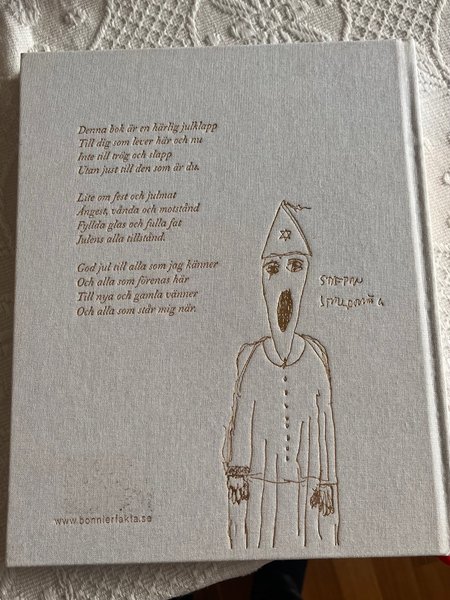 Denna bok är en härlig julklapp
Till dig som lever här och nu
Inte till trög och slapp
Utan just till den som är du.
Lite om fest och julmat
Ångest, vånda och motstånd
Fyllda glas och fulla fat
Julens alla tillstånd.
God jul till alla som jag känner
Och alla som förenas här
Till nya och gamla vänner
Och alla som står mig när.
www.bonnierfakta.se